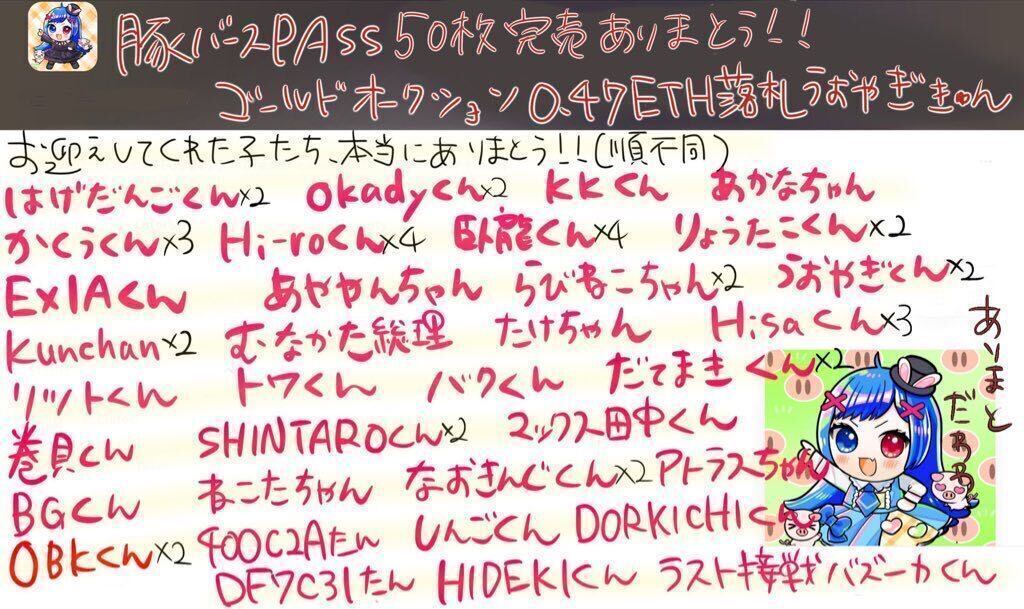 豚バースPASS50枚完売ありまとう!!
ゴールドオークション0.47ETH落札うおやぎきゅん
お迎えしてくれた子たち、本当にありまとう!!(順不同)
はげだんごくん×2 Okadyくん×2 KKくん あかなちゃん
かくうくん×3 Hi-roくん×4 臥龍くん×4 りょうたこくん×2
EXIAくん あややんちゃん らびねこちゃん×2 うおやぎくん×2
Kunchan×2 むなかた総理① たけちゃん Hisaくん×3
リットくん トワくん バクくん だてまきくん×2
巻貝くん SHINTAROくん×2 マックス田中くん
BGくん ねこたちゃん なおきんぐくん×2 アトラスちゃん
OBKくん×2 400C2Aたん しんごくん DORKICHIくん
DF7C31たん HIDEKIくん ラスト接戦バズーカくん
ありまと
だわわ